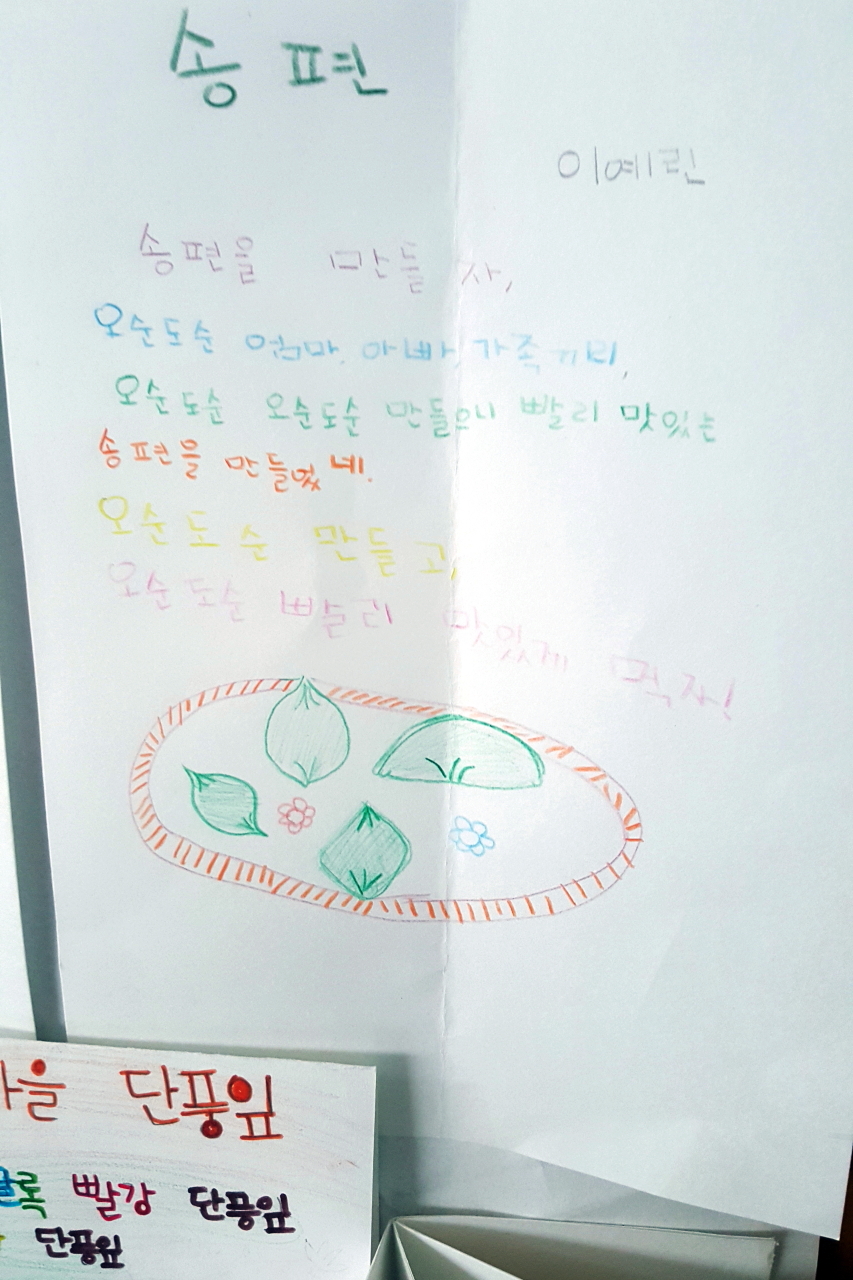 송편
이예린
송편을 만들자,
오순도순 엄마, 아빠, 가족끼리,
오순도순 오순도순 만들으니 빨리 맛있는
송편을 만들었네.
오순도순 만들고,
오순도순 빨리 맛있게 먹자!
을 단풍잎
록 빨강 단풍잎
단풍잎